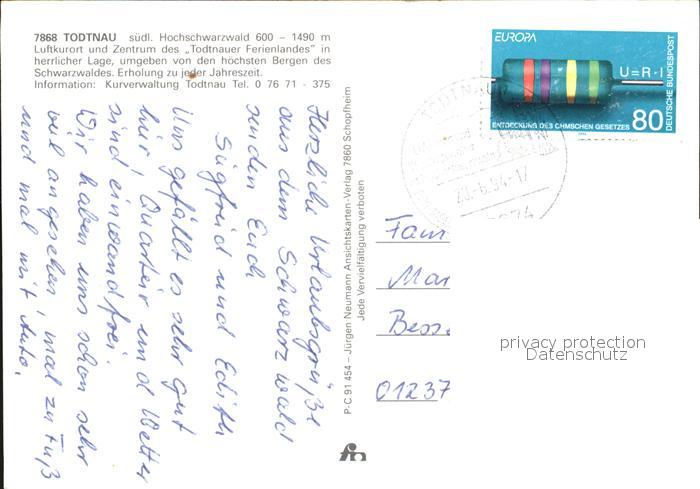 7868 TODTNAU südl. Hochschwarzwald 600 – 1490 m
Luftkurort und Zentrum des „Todtnauer Ferienlandes" in
herrlicher Lage, umgeben von den höchsten Bergen des
Schwarzwaldes. Erholung zu jeder Jahreszeit.
Information: Kurverwaltung Todtnau Tel. 0 76 71 - 375
Herzliche Urlaubsgrüße
aus dem Schwarzwald
senden Euch
Siegfried und Edith
Uns gefällt es sehr gut
hier, Quartier und Wetter
sind einwandfrei.
Wir haben uns schon sehr
viel angesehen, mal zu Fuß
und mal mit Auto.
P·C 91 454 – Jürgen Neumann Ansichtskarten-Verlag 7860 Schopfheim
Jede Vervielfältigung verboten
EUROPA
U=R·I
ENTDECKUNG DES OHMSCHEN GESETZES 80
DEUTSCHE BUNDESPOST
TODTNAU
20.-6.94-17
Fam
Mar
Bess
01237
privacy protection
Datenschutz